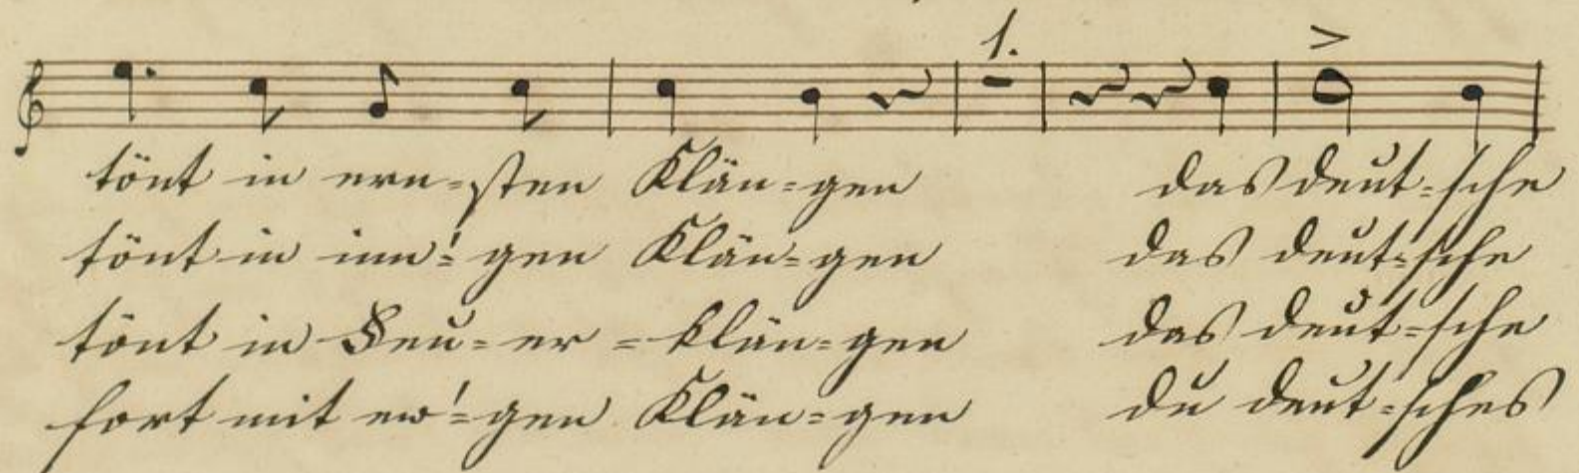 1.
tönt in ern-sten Klän-gen das deut-sche
tönt in inn'-gen Klän-gen das deut-sche
tönt in Feu-er-klän-gen das deut-sche
fort mit ew'-gen Klän-gen du deut-sches